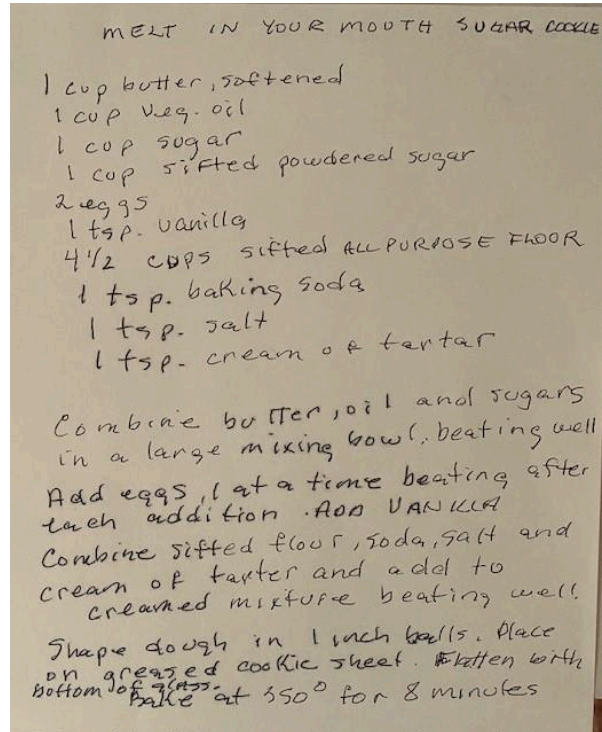 MELT IN YOUR MOUTH SUGAR COOKIE
1 cup butter, softened
1 cup veg. oil
1 cup sugar
1 cup sifted powdered sugar
2 eggs
1 tsp. vanilla
4 1/2 cups sifted ALL PURPOSE FLOOR
1 tsp. baking soda
1 tsp. salt
1 tsp. cream of tartar
Combine butter, oil and sugars
in a large mixing bowl, beating well
Add eggs, 1 at a time beating after
each addition. ADD VANILLA
Combine sifted flour, soda, salt and
cream of tarter and add to
creamed mixture beating well.
Shape dough in 1 inch balls. Place
on greased cookie sheet. Flatten with
bottom of glass.
Bake at 350° for 8 minutes